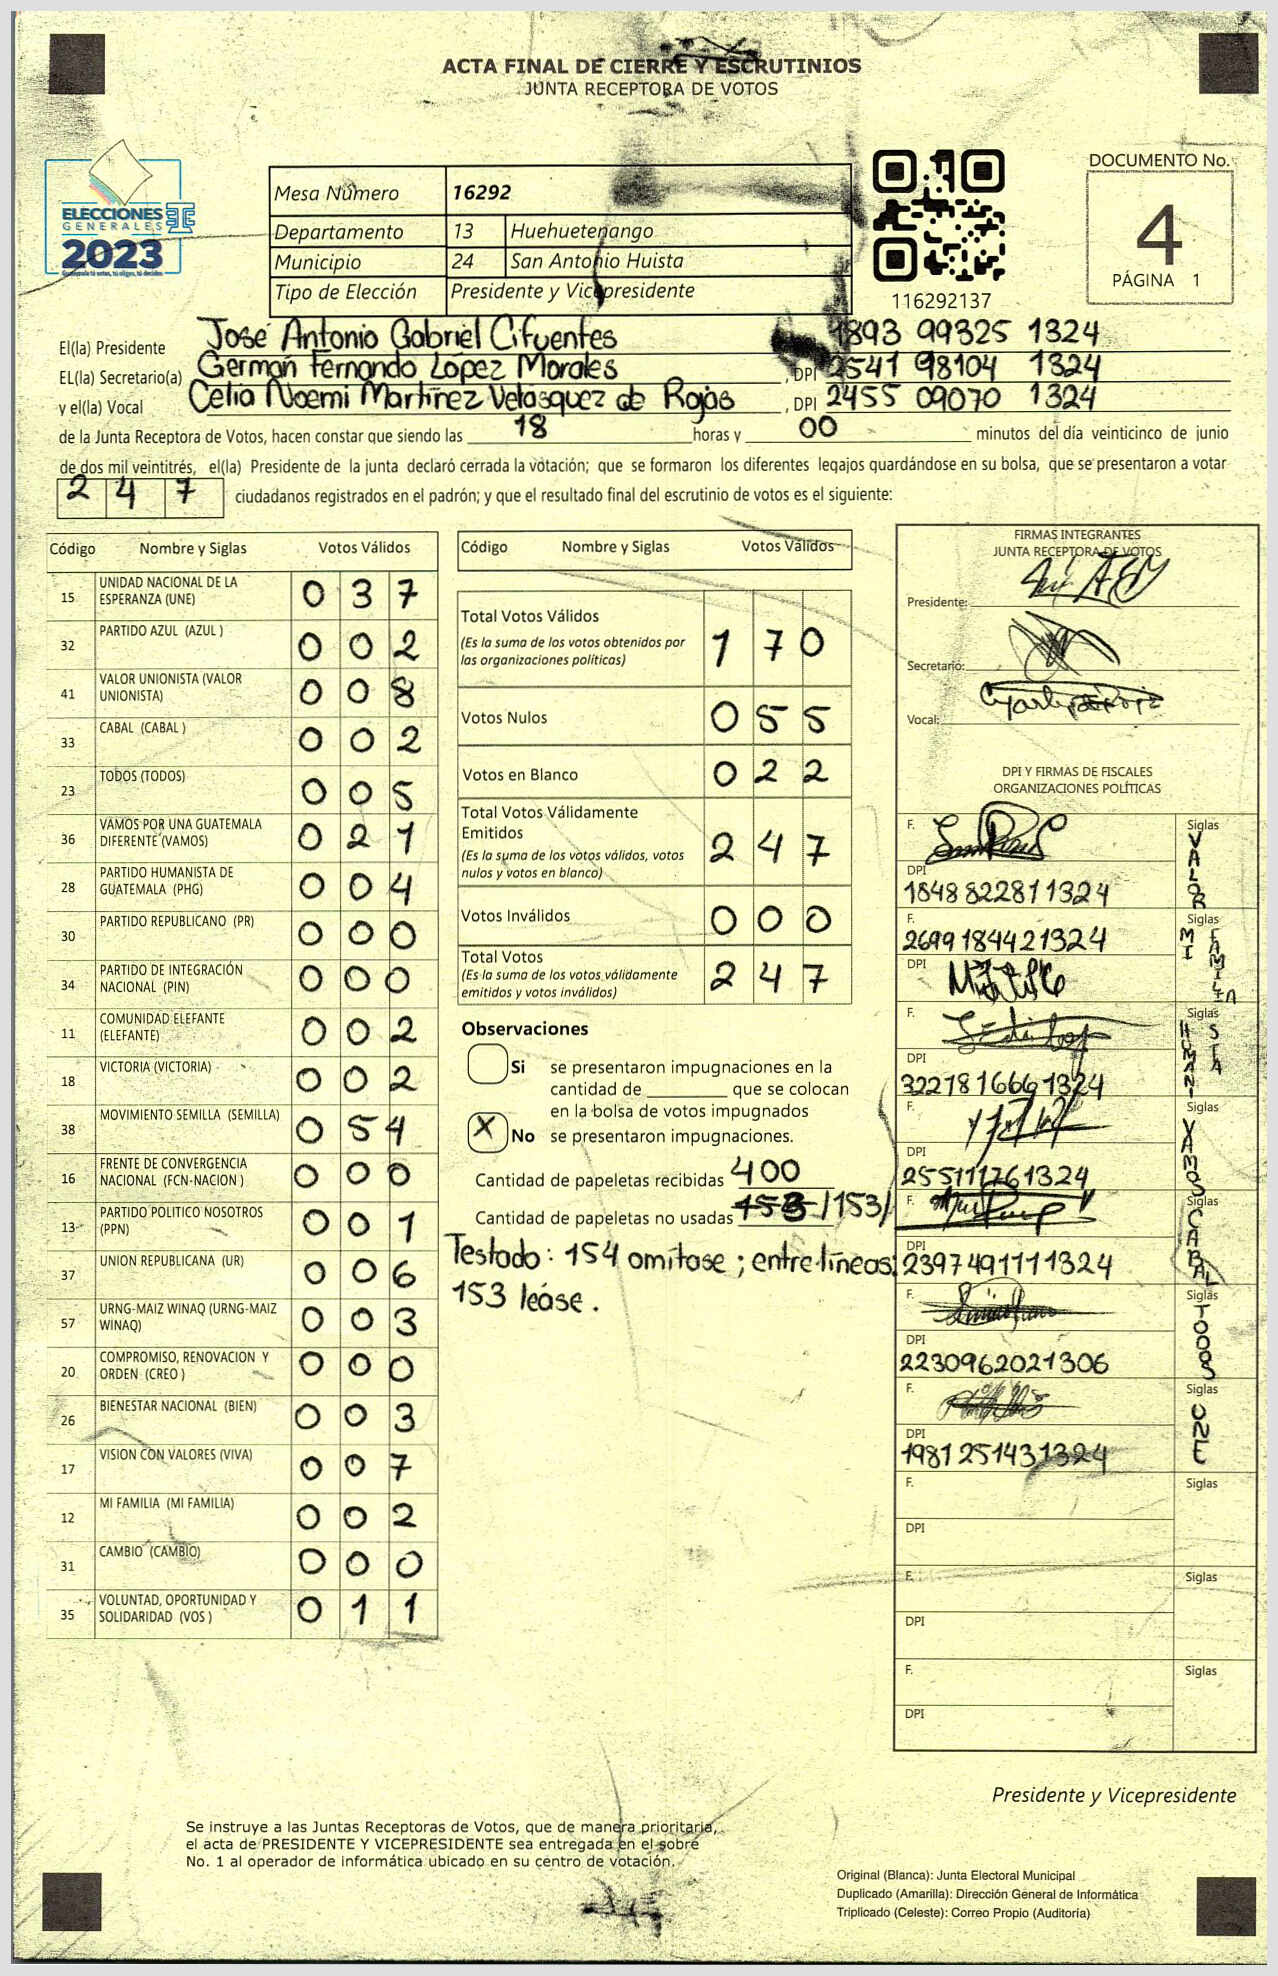 ACTA FINAL DE CIERRE Y ESCRUTINIOS
JUNTA RECEPTORA DE VOTOS
ELECCIONES
GENERALES
2023
Mesa Número 16292
Departamento 13 Huehuetenango
Municipio 24 San Antonio Huista
Tipo de Elección Presidente y Vicepresidente
116292137
DOCUMENTO No.
4
PÁGINA 1
El(la) Presidente José Antonio Gabriel Cifuentes 1893 99325 1324
EL(la) Secretario(a) Germán Fernando López Morales , DPI 2541 98104 1324
y el(la) Vocal Celia Noemi Martínez Velásquez de Rojas , DPI 2455 09070 1324
de la Junta Receptora de Votos, hacen constar que siendo las 18 horas y 00 minutos del día veinticinco de junio
de dos mil veintitrés, el(la) Presidente de la junta declaró cerrada la votación; que se formaron los diferentes legajos guardándose en su bolsa, que se presentaron a votar
2 4 7 ciudadanos registrados en el padrón; y que el resultado final del escrutinio de votos es el siguiente:
Código Nombre y Siglas Votos Válidos
15 UNIDAD NACIONAL DE LA ESPERANZA (UNE) 0 3 7
32 PARTIDO AZUL (AZUL ) 0 0 2
41 VALOR UNIONISTA (VALOR UNIONISTA) 0 0 8
33 CABAL (CABAL ) 0 0 2
23 TODOS (TODOS) 0 0 5
36 VAMOS POR UNA GUATEMALA DIFERENTE (VAMOS) 0 2 1
28 PARTIDO HUMANISTA DE GUATEMALA (PHG) 0 0 4
30 PARTIDO REPUBLICANO (PR) 0 0 0
34 PARTIDO DE INTEGRACIÓN NACIONAL (PIN) 0 0 0
11 COMUNIDAD ELEFANTE (ELEFANTE) 0 0 2
18 VICTORIA (VICTORIA) 0 0 2
38 MOVIMIENTO SEMILLA (SEMILLA) 0 5 4
16 FRENTE DE CONVERGENCIA NACIONAL (FCN-NACION ) 0 0 0
13 PARTIDO POLITICO NOSOTROS (PPN) 0 0 1
37 UNION REPUBLICANA (UR) 0 0 6
57 URNG-MAIZ WINAQ (URNG-MAIZ WINAQ) 0 0 3
20 COMPROMISO, RENOVACION Y ORDEN (CREO ) 0 0 0
26 BIENESTAR NACIONAL (BIEN) 0 0 3
17 VISION CON VALORES (VIVA) 0 0 7
12 MI FAMILIA (MI FAMILIA) 0 0 2
31 CAMBIO (CAMBIO) 0 0 0
35 VOLUNTAD, OPORTUNIDAD Y SOLIDARIDAD (VOS ) 0 1 1
Código Nombre y Siglas Votos Válidos
Total Votos Válidos 1 7 0
(Es la suma de los votos obtenidos por
las organizaciones políticas)
Votos Nulos 0 5 5
Votos en Blanco 0 2 2
Total Votos Válidamente
Emitidos 2 4 7
(Es la suma de los votos válidos, votos
nulos y votos en blanco)
Votos Inválidos 0 0 0
Total Votos 2 4 7
(Es la suma de los votos válidamente
emitidos y votos inválidos)
Observaciones
Si se presentaron impugnaciones en la
cantidad de ________ que se colocan
en la bolsa de votos impugnados
X No se presentaron impugnaciones.
Cantidad de papeletas recibidas 400
Cantidad de papeletas no usadas /153/
Testado: 154 omítase ; entre líneas:
153 léase .
FIRMAS INTEGRANTES
JUNTA RECEPTORA DE VOTOS
Presidente:
Secretario:
Vocal:
DPI Y FIRMAS DE FISCALES
ORGANIZACIONES POLÍTICAS
F. Siglas VALOR
DPI 1848 82281 1324
F. 2699 18442 1324 Siglas MI FAMILIA
DPI
F. Siglas HUMANISTA
DPI 3221816661324
F. Siglas VAMOS
DPI 255111761324
F. Siglas CABAL
DPI 2397491111324
F. Siglas TODOS
DPI 2230962021306
F. Siglas UNE
DPI 1981251431324
F. Siglas
DPI
F. Siglas
DPI
F. Siglas
DPI
Presidente y Vicepresidente
Se instruye a las Juntas Receptoras de Votos, que de manera prioritaria,
el acta de PRESIDENTE Y VICEPRESIDENTE sea entregada en el sobre
No. 1 al operador de informática ubicado en su centro de votación.
Original (Blanca): Junta Electoral Municipal
Duplicado (Amarilla): Dirección General de Informática
Triplicado (Celeste): Correo Propio (Auditoría)